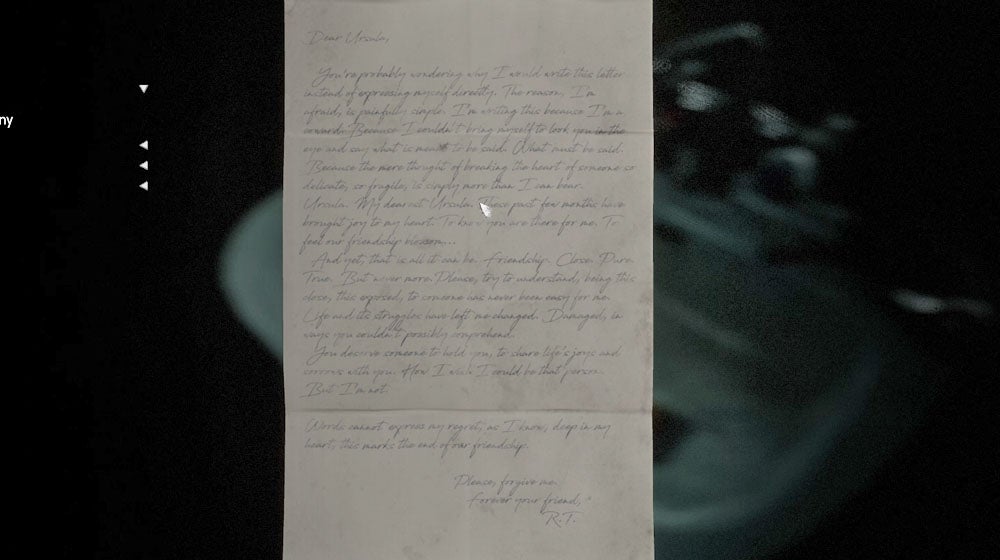 ny
Dear Ursula,
You're probably wondering why I would write this letter
instead of expressing myself directly. The reason, I'm
afraid, is painfully simple. I'm writing this because I'm a
coward. Because I couldn't bring myself to look you in the
eye and say what is meant to be said. What must be said.
Because the mere thought of breaking the heart of someone so
delicate, so fragile, is simply more than I can bear.
Ursula. My dearest Ursula. These past few months have
brought joy to my heart. To know you are there for me. To
feel our friendship blossom...
And yet, that is all it can be. Friendship. Close. Pure.
True. But never more. Please, try to understand, being this
close, this exposed, to someone has never been easy for me.
Life and its struggles have left me changed. Damaged, in
ways you couldn't possibly comprehend.
You deserve someone to hold you, to share life's joys and
sorrows with you. How I wish I could be that person.
But I'm not.
Words cannot express my regret, as I know, deep in my
heart, this marks the end of our friendship.
Please, forgive me.
Forever your friend,
R.T.